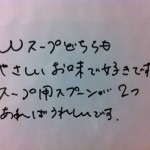 Wスープどちらも
やさしいお味で好きです
スープ用スプーンが2つ
あればうれしいです。